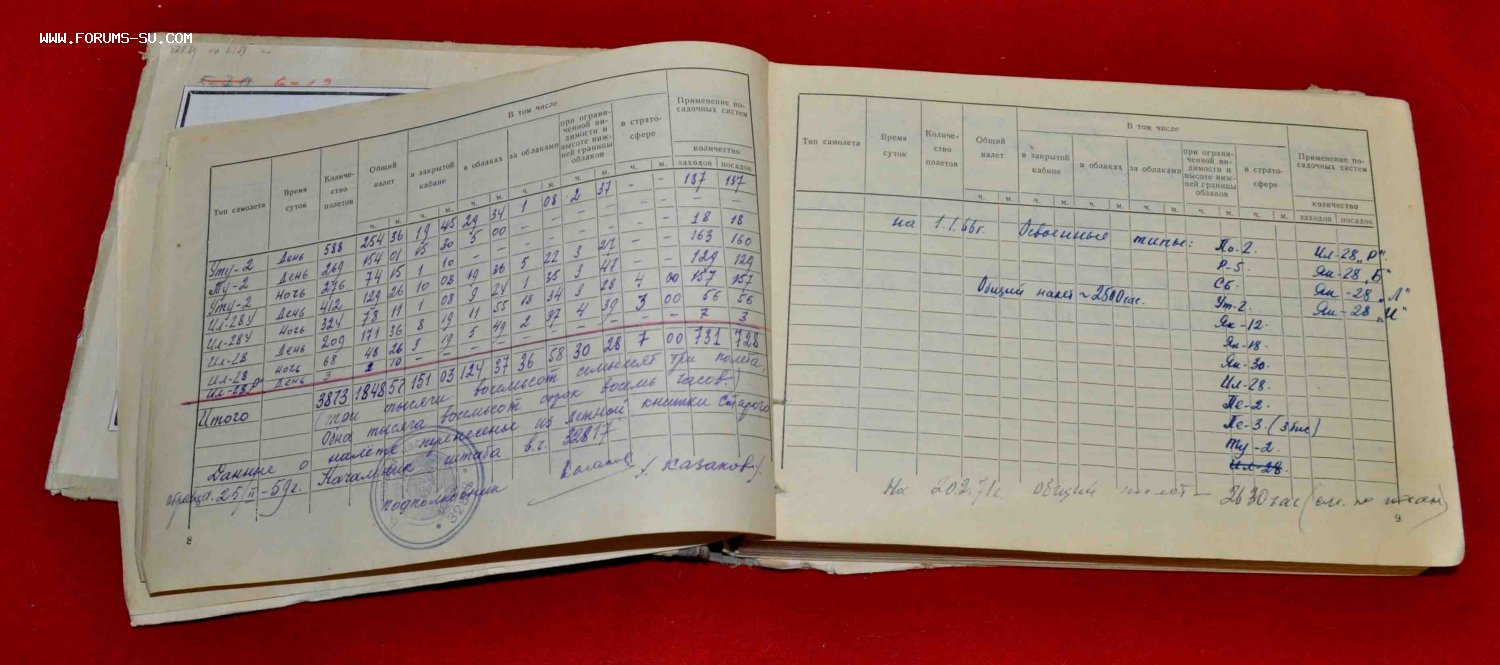 WWW.FORUMS-SU.COM
Тип самолета
Время суток
Количество полетов
Общий налет
В том числе
в закрытой кабине
в облаках
за облаками
при ограниченной видимости и высоте нижней границы облаков
в стратосфере
Применение посадочных систем
количество
заходов посадок
ч. м. ч. м. ч. м. ч. м. ч. м. ч. м.
Уту-2 День 588 254 36 19 45 29 34 1 08 2 37 - - 137 137
Ту-2 День 269 154 01 15 30 5 00 - - - - - - - -
Уту-2 Ночь 276 74 15 1 10 - - 18 18
Ил-28У День 412 129 26 10 08 19 36 5 22 3 27 163 160
Ил-28У Ночь 324 78 11 1 08 9 24 1 35 3 47 129 129
Ил-28 День 209 171 36 8 19 11 55 18 34 3 28 4 00 157 157
Ил-28 Ночь 68 48 26 3 19 5 49 2 4 39 3 00 56 56
Ил-28„Р" День 2 10 - - - - - - 7 3
Итого 3873 1848 52 151 03 124 37 36 58 30 28 7 00 731 728
(три тысячи восемьсот семьдесят три полета,
Одна тысяча восемьсот сорок восемь часов.)
Данные о налете перенесены из летной книжки старого
образца. 25/II-59г. Начальник штаба в.ч. 32817
подполковник /Казаков/.
8
Тип самолета
Время суток
Количество полетов
Общий налет
В том числе
в закрытой кабине
в облаках
за облаками
при ограниченной видимости и высоте нижней границы облаков
в стратосфере
Применение посадочных систем
количество
заходов посадок
ч. м. ч. м. ч. м. ч. м. ч. м. ч. м.
на 1.1.66г. Освоенные типы: По-2. Ил-28„Р".
Р-5. Ил-28„Б"
СБ. -28„Л"
Общий налет ~2500час. Ут-2. -28„И"
Як-12.
Як-18.
Як-30.
Ил-28.
Пе-2.
Пе-3.
Ту-2.
Ил-28.
На 2.02.71г. общий налет - 2630 час (см. по годам)
9